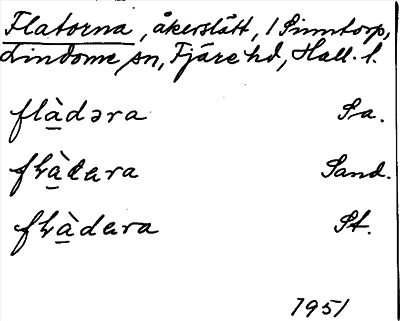 Flatorna, åkerslätt, 1 Sinntorp,
Lindome sn, Fjäre hd, Hall. l.
flàdəra Sa.
fḷàdɐra Sand.
fḷàdɐra St.
1951